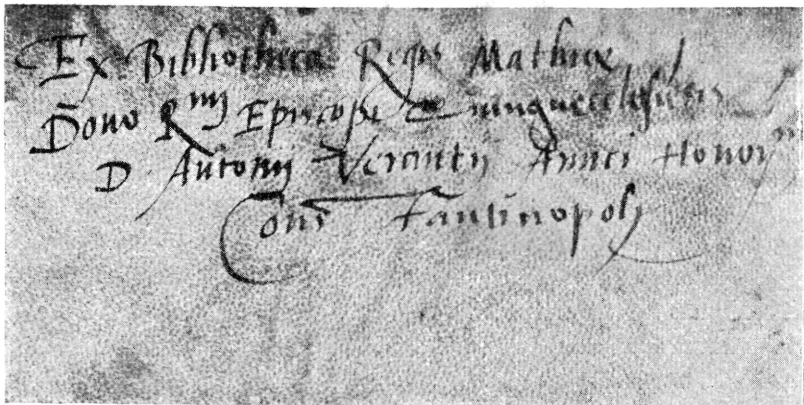 Ex Bibliotheca Regis Mathiæ
Dono Rmi Episcopi Quinqueeclesiensis
D. Antonij Verantij Amici Honor
Cons tantinopoli